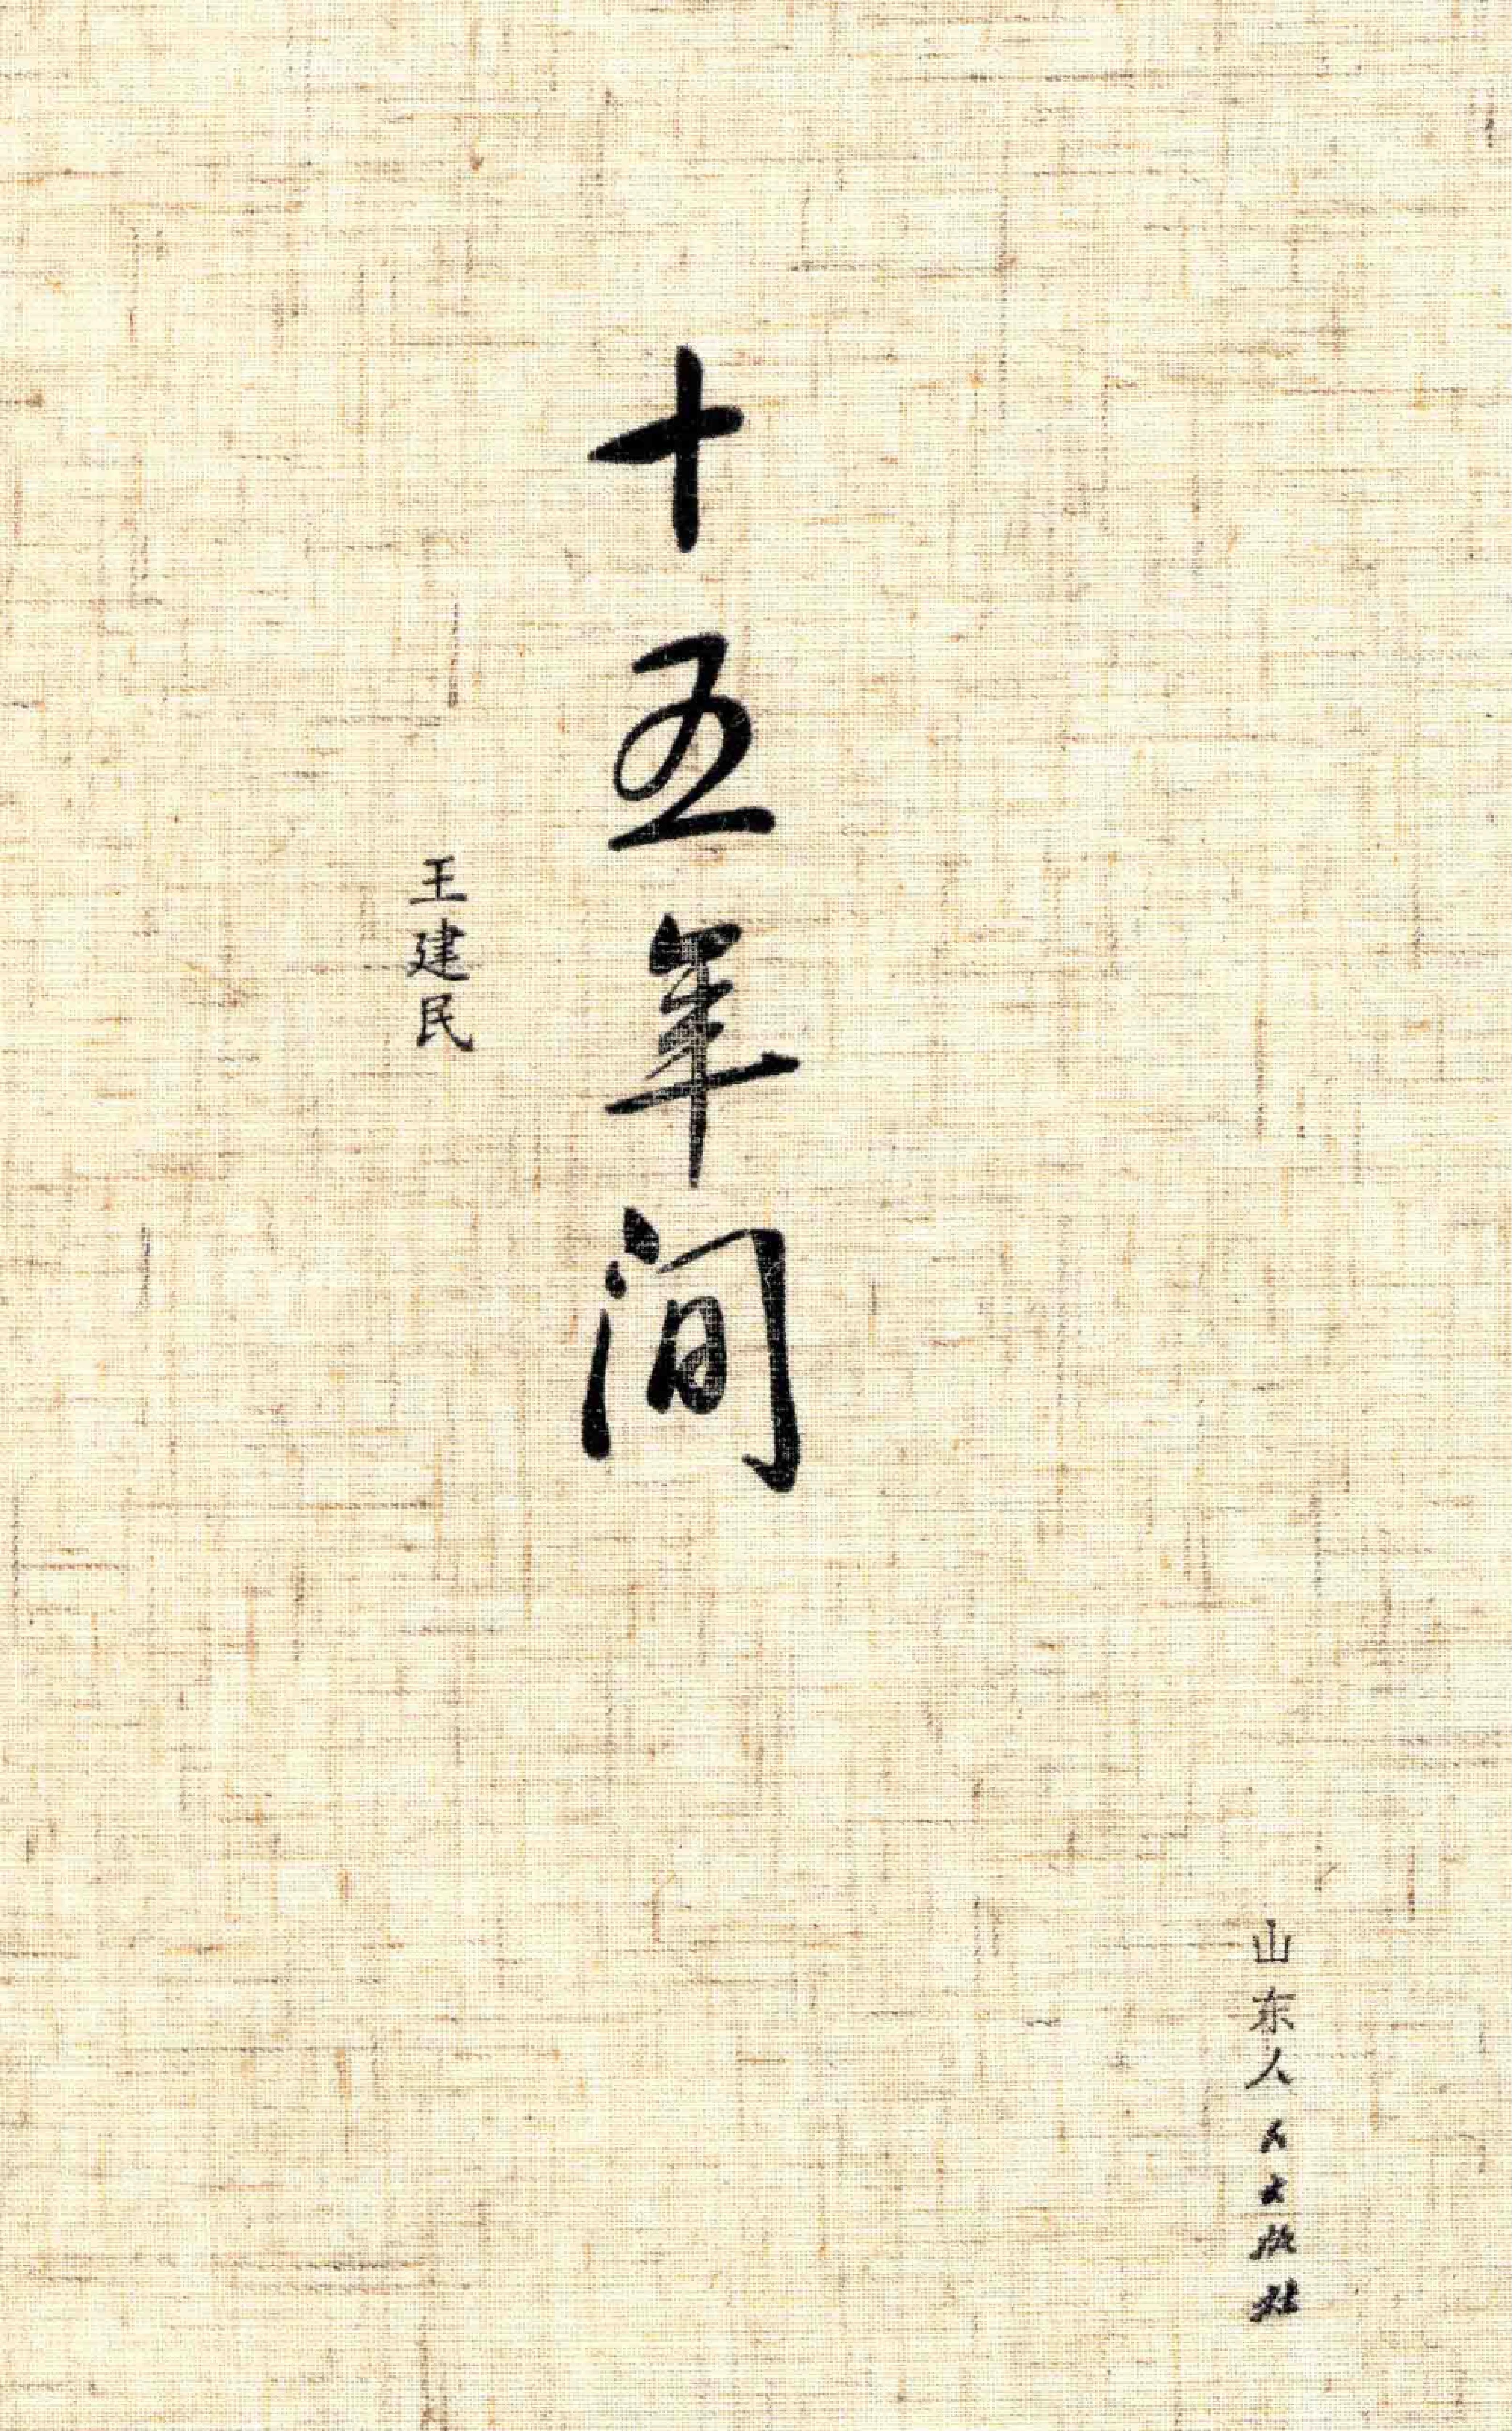 十五年间
王建民
山东人民出版社